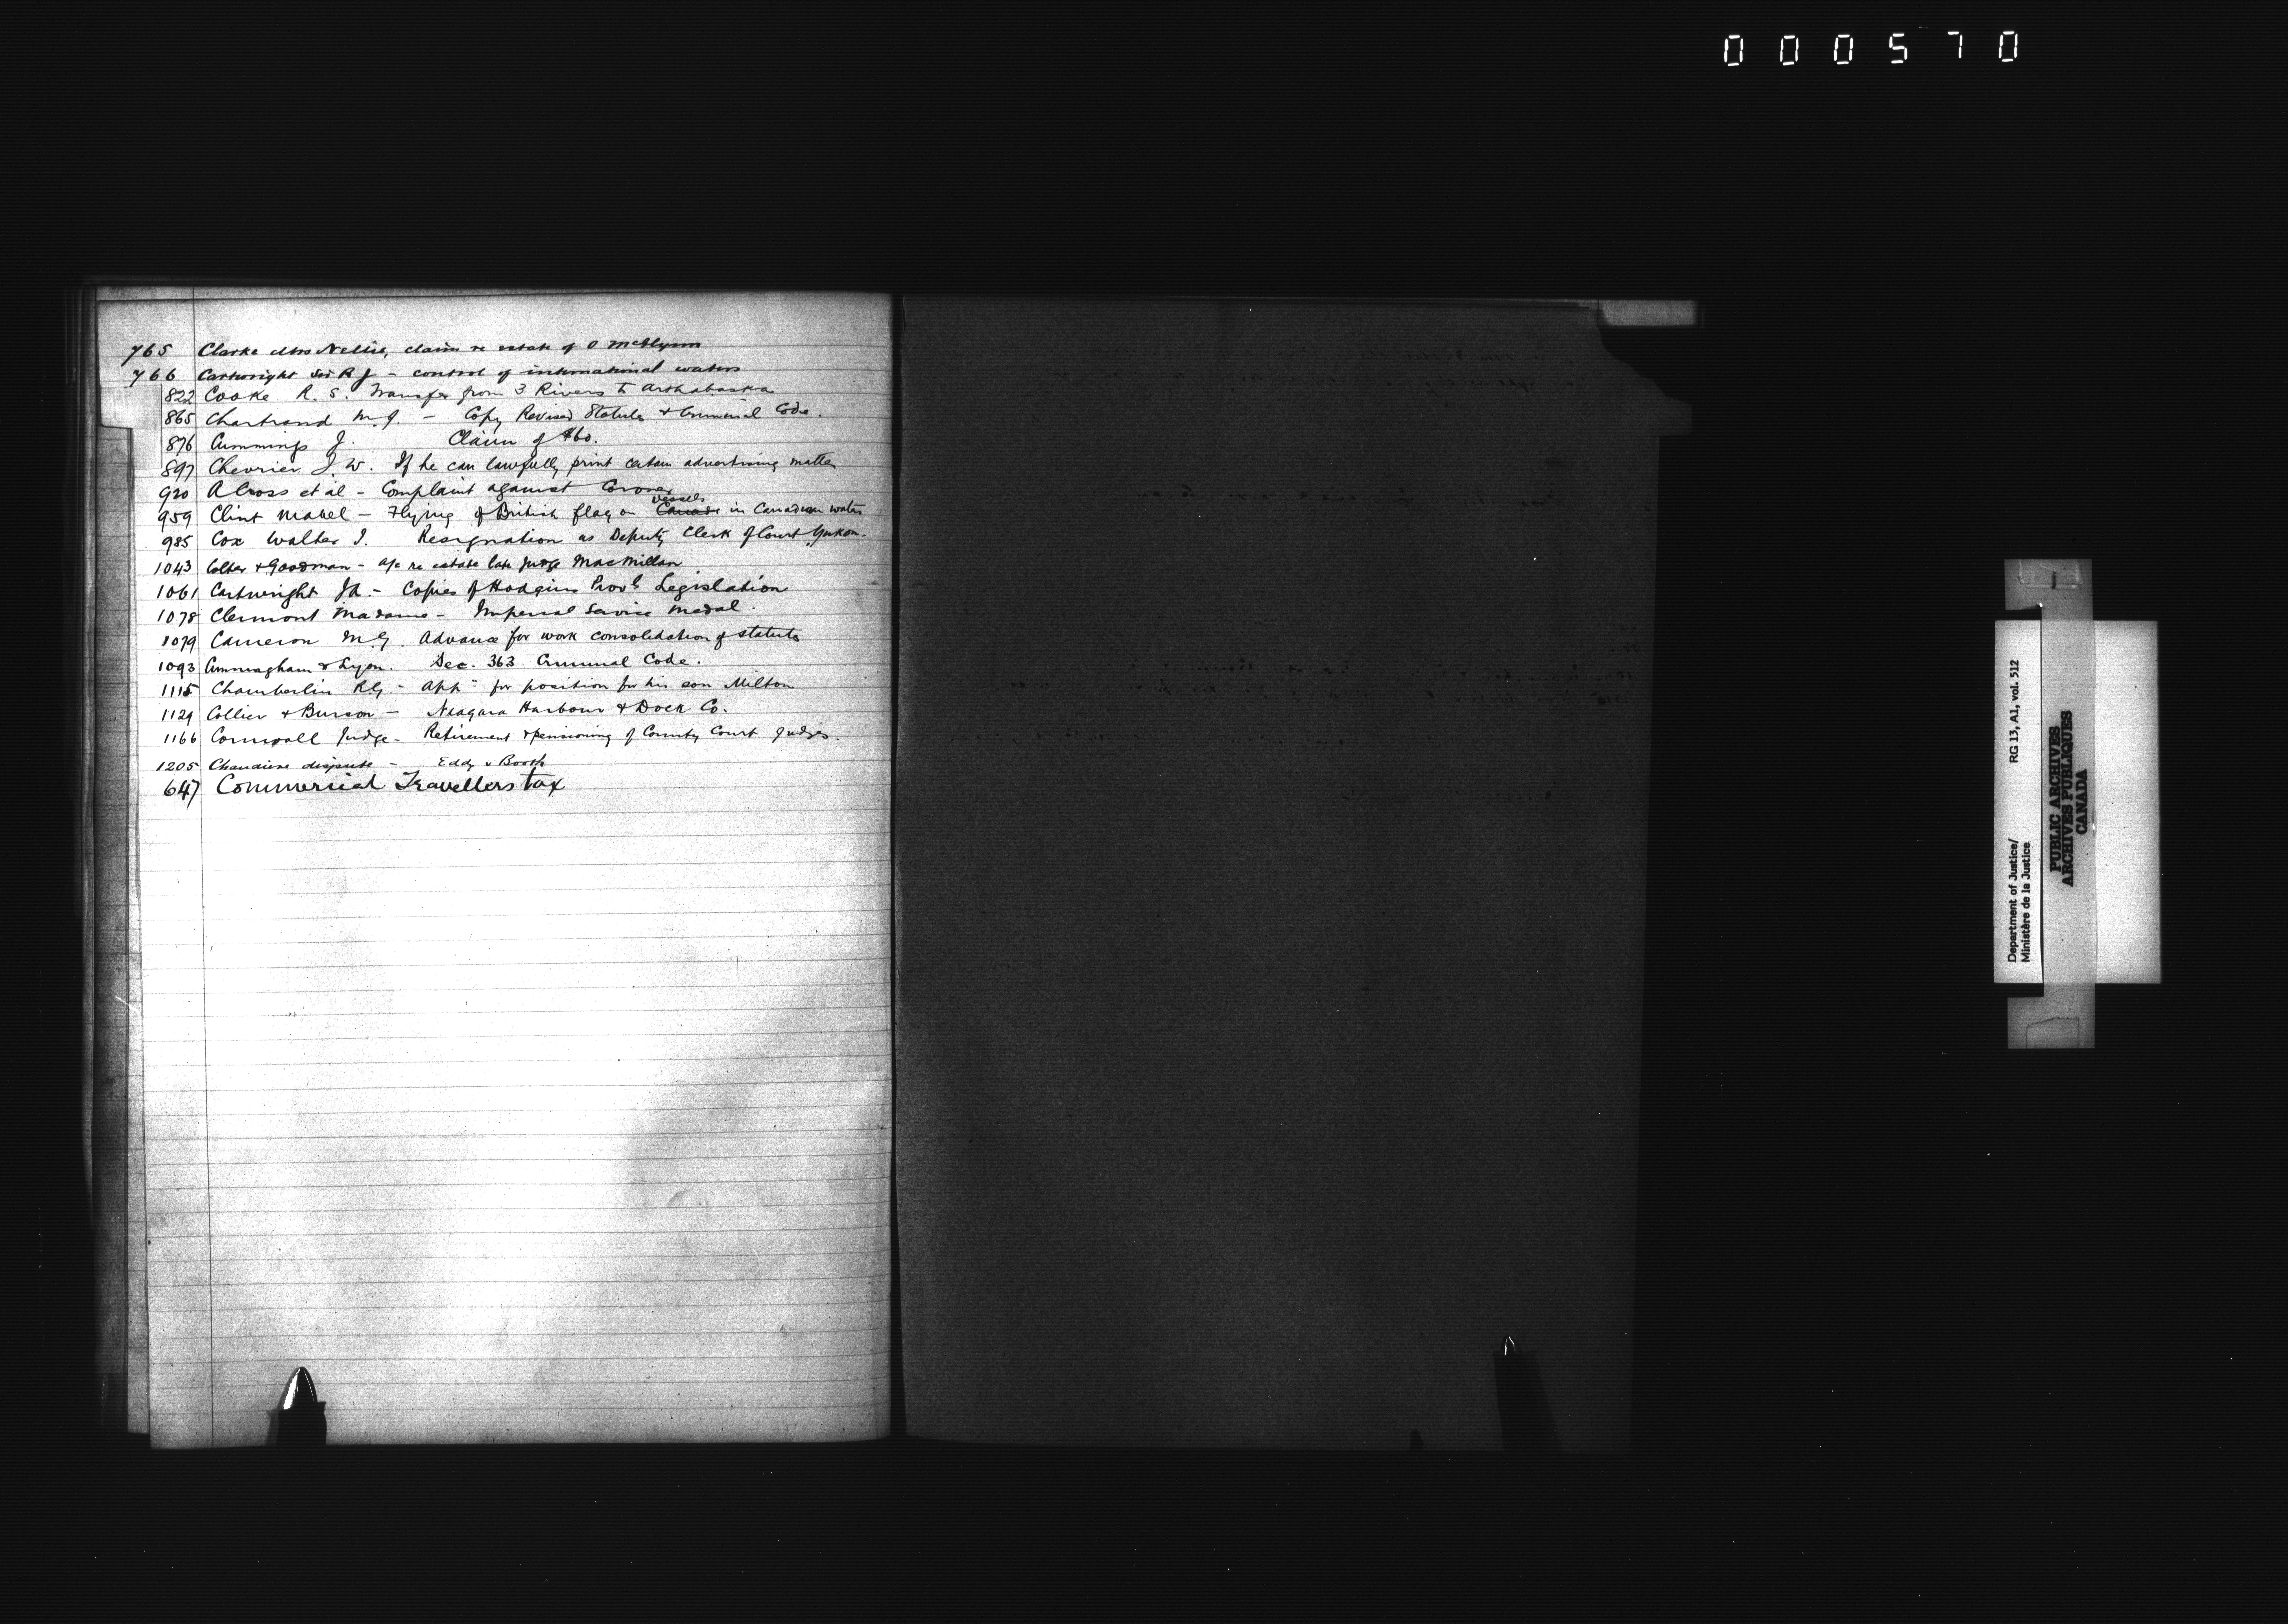 000570
765 Clarke Mrs Nellie, claim re estate of O McGlynn
766 Cartwright Sir R J - control of international waters
822 Cooke R. S. Transfer from 3 Rivers to Arthabaska
865 Chartrand M. J. - Copy Revised Statutes & Criminal Code.
876 Cummings J. Claim of $60.
897 Chevrier J. W. If he can lawfully print certain advertising matter
920 A Cross et al - Complaint against Coroner
959 Clint Mabel - Flying of British flag on Canada vessels in Canadian waters
985 Cox Walter I. Resignation as Deputy Clerk of Court Yukon.
1043 & Goodman - a/c re estate late Judge MacMillan
1061 Cartwright Jd. - Copies of Hodgins Provl Legislation
1078 Clermont Madame - Imperial Service Medal.
1079 Cameron M.G. Advance for work consolidation of statutes
1093 Cunningham & Lyon. Sec. 363 Criminal Code.
1115 Chamberlin RG - Appn for position for his son Milton
1129 Collier & Burson - Niagara Harbour & Dock Co.
1166 Cornwall Judge - Retirement & pensioning of County Court Judges.
1205 Chaudiere dispute - Eddy v Booth
647 Commercial Travellers tax
Department of Justice/ RG 13, A1, vol. 512
Ministère de la Justice
PUBLIC ARCHIVES
ARCHIVES PUBLIQUES
CANADA